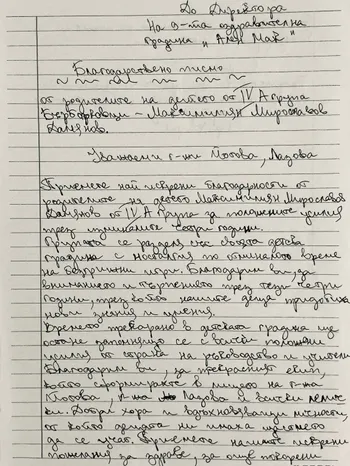 До Директора
На 9-та оздравителна
градина „Ален Мак"
Благодарствено писмо
от родителите на детето от IV А група
Бърборковци – Максимилиян Мирославов
Далянов.
Уважаеми г-жи Йотова, Лазова
Приемете най искрени благодарности от
родителите на детето Максимилиян Мирославов
Далянов от IV А Група за положените усилия
през изминалите четри години.
Групата се разделя със своята детска
градина с носталгия по отминалото време
на безгрижни игри. Благодарим ви, за
вниманието и търпението през тези четри
години, през които нашите деца придобиха
нови знания и умения.
Времето прекарано в детската градина ще
остане запомнящо се с всички положени
усилия от страна на ръководство и учители
Благодарим ви, за прекрасния екип,
който сформирахте в лицето на г-жа
Йотова, г-жа Лазова и всички лелич
ки. Добри хора и вдъхновяващи личности,
от които децата ни имаха щастието
да се учат. Приемете нашите искрени
пожелания за здраве, за още покорени